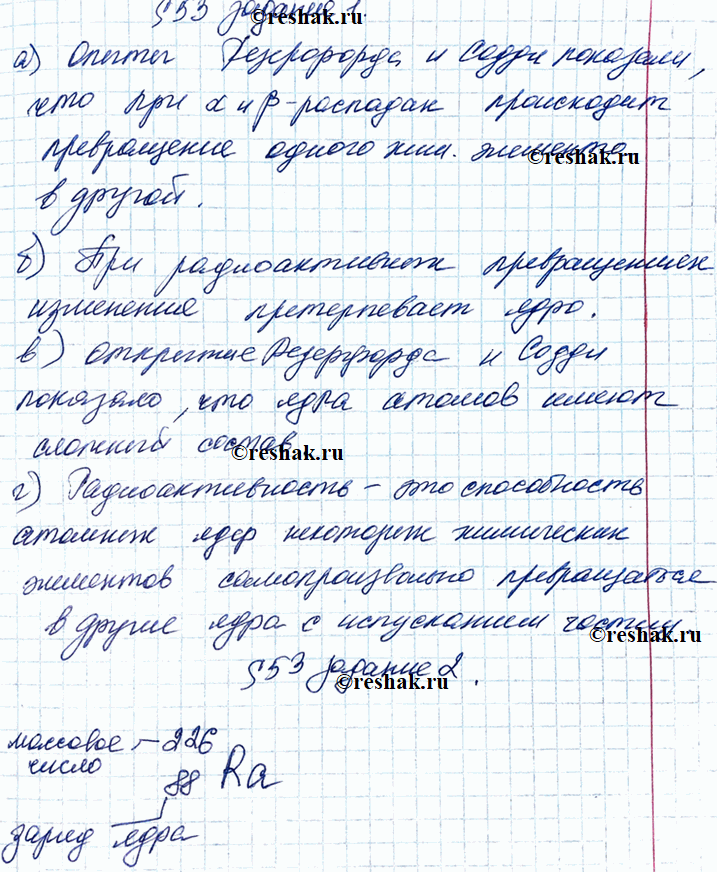 §53 задание 1.
©reshak.ru
а) Опыты Резерфорда и Содди показали,
что при α и β-распадах происходит
превращение одного хим. элемента
©reshak.ru
в другой.
б) При радиоактивных превращениях
изменения претерпевает ядро.
©reshak.ru
в) Открытие Резерфорда и Содди
показало, что ядра атомов имеют
сложный состав
©reshak.ru
г) Радиоактивность – это способность
атомных ядер некоторых химических
элементов самопроизвольно превращаться
в другие ядра с испусканием частиц.
©reshak.ru
§53 задание 2.
©reshak.ru
массовое – 226
число 88 Ra
заряд ядра